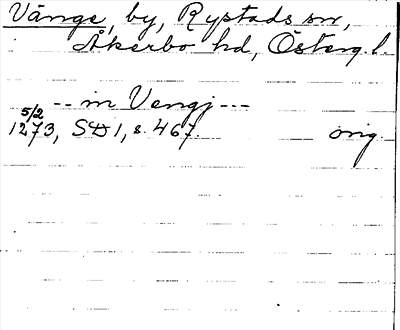 Vänge, by, Rystads sn,
Åkerbo hd, Österg. l.
-- in Vengj ---
5/2
1273, SD 1, s. 467. orig.